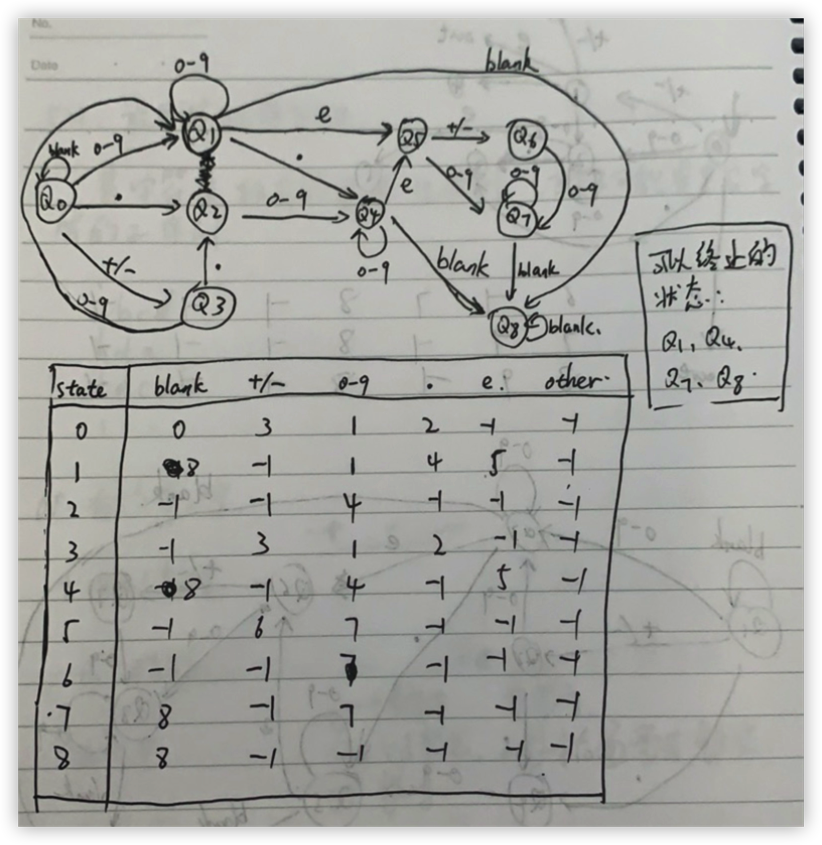 No.
Date
0-9
blank
Q1
e
Q5
+/-
Q6
blank
0-9
.
0-9
0-9
0-9
Q0
.
Q2
0-9
Q4
e
Q7
+/-
.
0-9
blank
blank
0-9
Q3
Q8
blank.
可以终止的
状态:
Q1、Q4、
Q7、Q8.
state blank +/- 0-9 . e. other.
0 0 3 1 2 -1 -1
1 8 -1 1 4 5 -1
2 -1 -1 4 -1 -1 -1
3 -1 3 1 2 -1 -1
4 8 -1 4 -1 5 -1
5 -1 6 7 -1 -1 -1
6 -1 -1 7 -1 -1 -1
7 8 -1 7 -1 -1 -1
8 8 -1 -1 -1 -1 -1